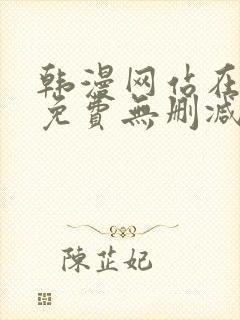 韩漫网站在
免費無删减
陳芷妃